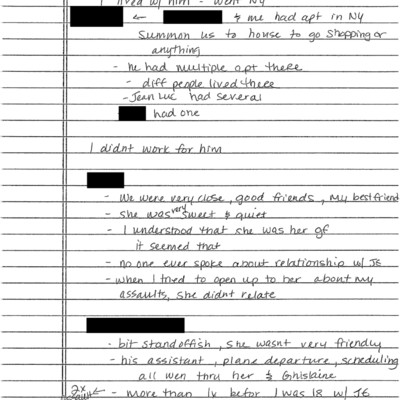 I lived w/ him - went NY
← & me had apt in NY
Summon us to house to go shopping or
anything
- he had multiple apt there
- diff people lived there
- Jean Luc had several
had one
I didnt work for him
- we were very close, good friends, my best friend
- she was very sweet & quiet
- I understood that she was her gf
it seemed that
- no one ever spoke about relationship w/ JE
- when I tried to open up to her about my
assaults, she didnt relate
- bit standoffish, she wasnt very friendly
- his assistant, plane departure, scheduling
all wen thru her & Ghislaine
2x ← - more than 1x befor I was 18 w/ JE